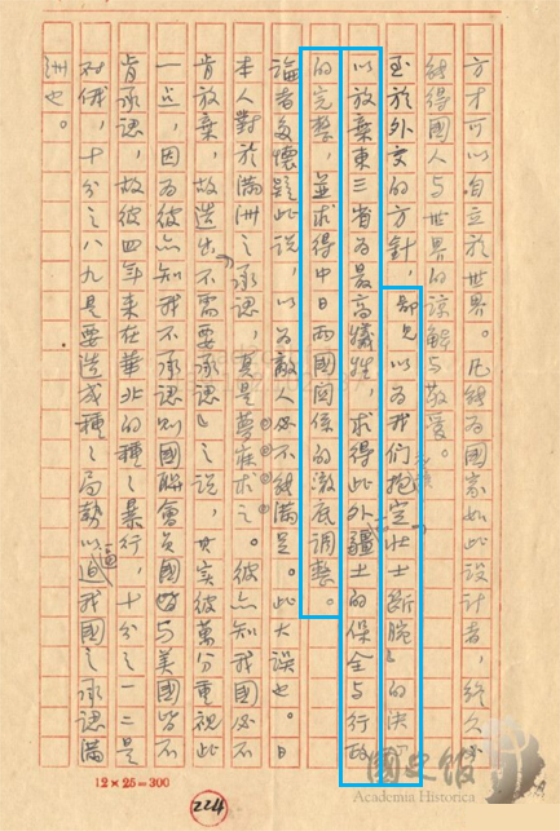 方才可以自立於世界。凡能為國家如此設計者，終久必
能得國人与世界的諒解与敬愛。
至於外交的方針，鄙見以為我們應先抱定「壯士断腕」的決心，
以放棄東三省為最高犧牲，求得此外疆土的保全与行政
的完整，並求得中日兩國関係的澈底調整。
論者多懷疑此說，以為敵人必不能滿足。此大誤也。日
本人對於滿洲之承認，真是夢寐求之。彼亦知我國必不
肯放棄，故造出「不需要承認」之說，其实彼萬分重視此
一点，因為彼亦知我不承認則國聯會員國皆与美國皆不
肯承認，故彼四年来在華北的種々暴行，十分之一二是
对俄，十分之八九是要造成種々局勢以逼我國之承認滿
洲也。
12×25=300
224
國史館
Academia Historica